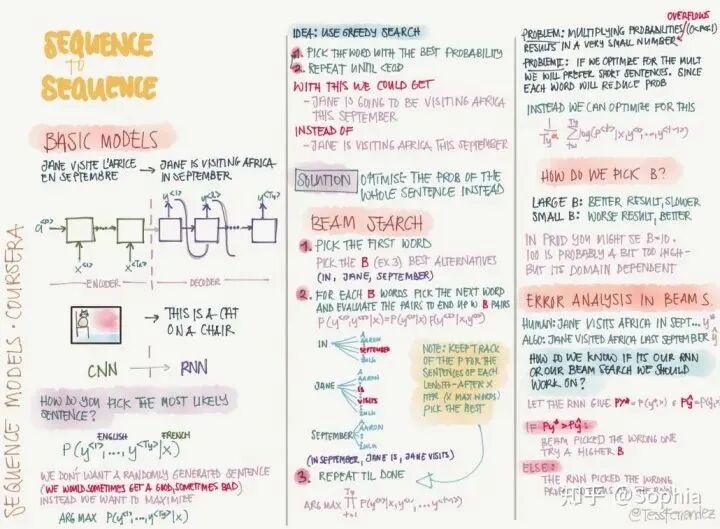 SEQUENCE
TO
SEQUENCE
BASIC MODELS
JANE VISITE L'AFRICE
EN SEPTEMBRE
JANE IS VISITING AFRICA
IN SEPTEMBER
y<1> y<2> y<Ty>
a<0>
x<1> x<Tx>
ENCODER
DECODER
THIS IS A CAT
ON A CHAIR
CNN
RNN
HOW DO YOU PICK THE MOST LIKELY
SENTENCE?
ENGLISH FRENCH
P(y<1>,...,y<Ty>|x)
WE DON'T WANT A RANDOMLY GENERATED SENTENCE
(WE WOULD SOMETIMES GET A GOOD, SOMETIMES BAD)
INSTEAD WE WANT TO MAXIMIZE
ARG MAX P(y<1>,...,y<Ty>|x)
SEQUENCE MODELS · COURSERA
IDEA: USE GREEDY SEARCH
1. PICK THE WORD WITH THE BEST PROBABILITY
2. REPEAT UNTIL <EOS>
WITH THIS WE COULD GET
- JANE IS GOING TO BE VISITING AFRICA
THIS SEPTEMBER
INSTEAD OF
- JANE IS VISITING AFRICA THIS SEPTEMBER
SOLUTION
OPTIMISE THE PROB OF THE
WHOLE SENTENCE INSTEAD
BEAM SEARCH
1. PICK THE FIRST WORD
PICK THE B (EX. 3) BEST ALTERNATIVES
(IN, JANE, SEPTEMBER)
2. FOR EACH B WORDS PICK THE NEXT WORD
AND EVALUATE THE PAIRS TO END UP W B PAIRS
P(y<1>,y<2>|x)=P(y<1>|x) P(y<2>|x,y<1>)
A
AARON
IN SEPTEMBER
ZULU
A
AARON
JANE IS
VISITS
ZULU
A
AARON
SEPTEMBER
ZULU
NOTE: KEEP TRACK
OF THE P FOR THE
SENTENCES OF EACH
LENGTH - AFTER X
ITER (X MAX WORDS)
PICK THE BEST
(IN SEPTEMBER, JANE IS, JANE VISITS)
3. REPEAT TIL DONE
ARG MAX
PROBLEM: MULTIPLYING PROBABILITIES (0<P<<1)
OVERFLOWS
RESULTS IN A VERY SMALL NUMBER
PROBLEM II: IF WE OPTIMIZE FOR THE MULT
WE WILL PREFER SHORT SENTENCES. SINCE
EACH WORD WILL REDUCE PROB
INSTEAD WE CAN OPTIMIZE FOR THIS
HOW DO WE PICK B?
LARGE B: BETTER RESULT, SLOWER
SMALL B: WORSE RESULT, BETTER
IN PROD YOU MIGHT SE B=10.
100 IS PROBABLY A BIT TOO HIGH -
BUT ITS DOMAIN DEPENDENT
ERROR ANALYSIS IN BEAM S.
HUMAN: JANE VISITS AFRICA IN SEPT...
ALGO: JANE VISITED AFRICA LAST SEPTEMBER
HOW DO WE KNOW IF ITS OUR RNN
OR OUR BEAM SEARCH WE SHOULD
WORK ON?
LET THE RNN GIVE
IF Py*>Pŷ:
BEAM PICKED THE WRONG ONE
TRY A HIGHER B
ELSE:
THE RNN PICKED THE WRONG
知乎 @Sophia
@TessFerrandez